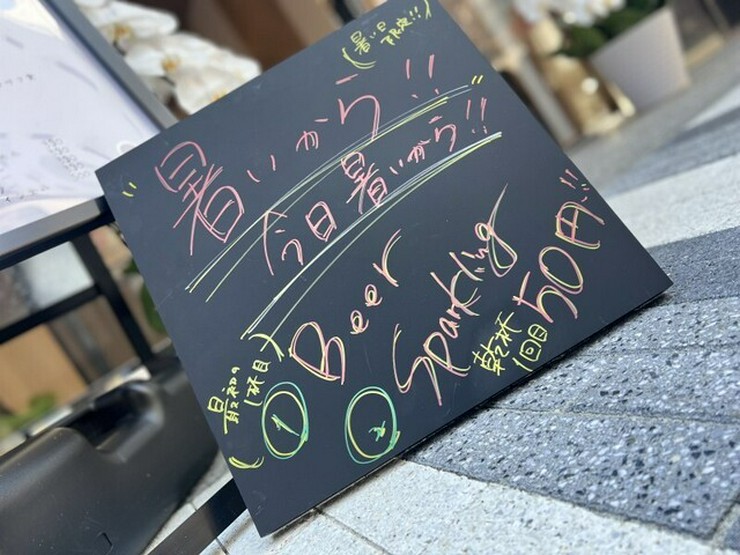 (暑い日限定!!)
"暑いから!!"
今日暑いから!!
(最初の1杯目)
① Beer
② Sparkling
乾杯1回目
50円!!